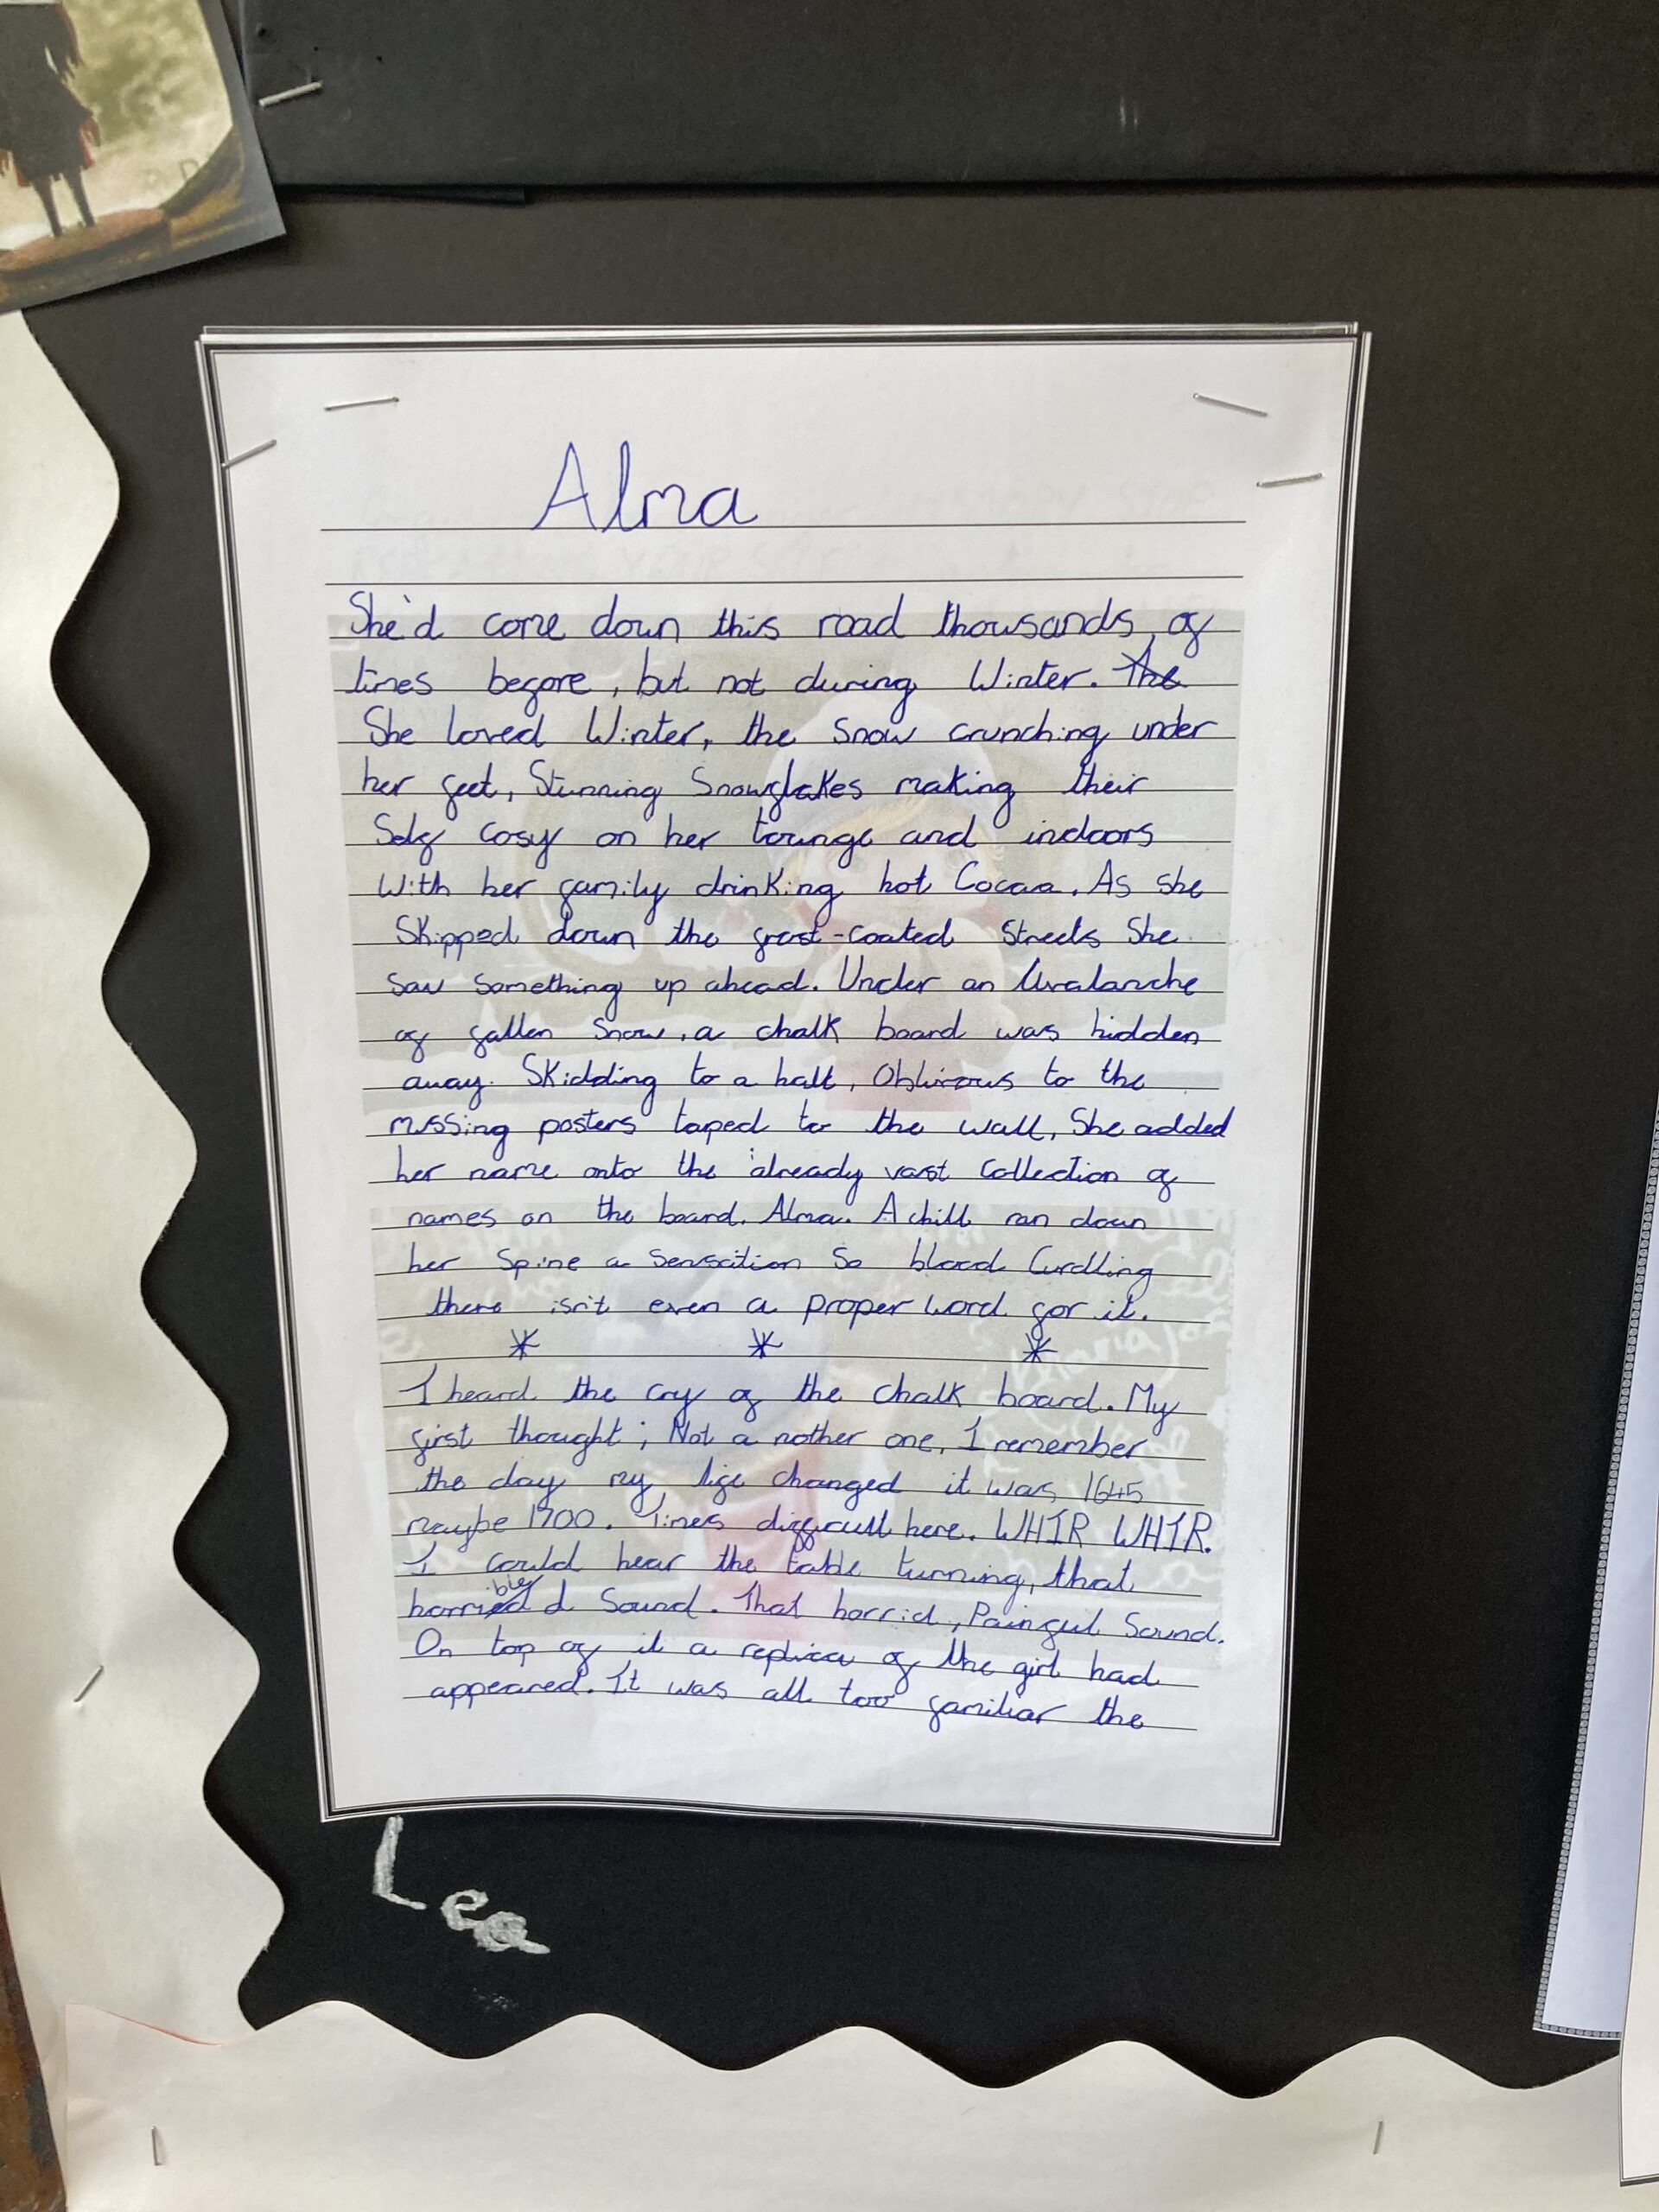 Alma
She'd come down this road thousands of
times before, but not during Winter. The
She loved Winter, the snow crunching under
her feet, Stunning Snowflakes making their
Self cosy on her tounge and indoors
With her family drinking hot Cocoa. As she
Skipped down the frost-coated Streets She
saw something up ahead. Under an Avalanche
of fallen Snow, a chalk board was hidden
away. Skidding to a halt, Oblivious to the
missing posters taped to the wall, She added
her name onto the already vast Collection of
names on the board. Alma. A chill ran down
her Spine a Sensation So blood Curdling
there isn't even a proper word for it.
* * *
I heard the cry of the chalk board. My
first thought; Not a nother one, I remember
the day my life changed it was 1645
maybe 1700. Times difficult here. WHIR WHIR.
I could hear the table turning, that
horrible Sound. That horrid, Painful Sound.
On top of it a replica of the girl had
appeared. It was all too familiar the
Lea